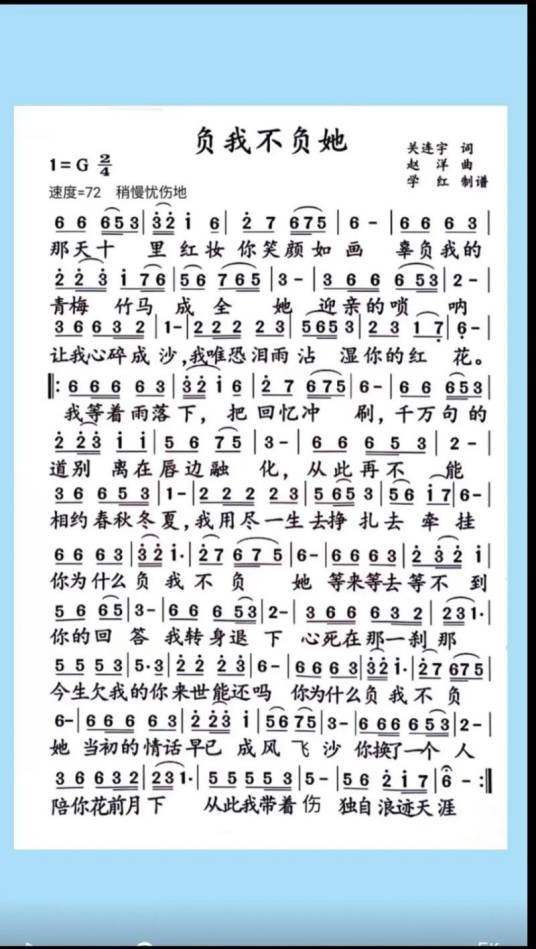 负我不负她
关连宇 词
1=G 2/4
赵 洋 曲
学 红 制谱
速度=72 稍慢忧伤地
6 6 6 5 3 | 3 2 1 6 | 2 7 6 7 5 | 6 - | 6 6 6 3 |
那天十 里红妆你笑颜如画 辜负我的
2 2 3 1 7 6 | 5 6 7 6 5 | 3 - | 3 6 6 6 5 3 | 2 - |
青梅 竹马 成全 她 迎亲的唢 呐
3 6 6 3 2 | 1 - | 2 2 2 2 3 | 5 6 5 3 | 2 3 1 7 | 6 - |
让我心碎成沙,我唯恐泪雨沾 湿你的红 花。
‖: 6 6 6 6 3 | 3 2 1 6 | 2 7 6 7 5 | 6 - | 6 6 6 5 3 |
我等着雨落下, 把回忆冲 刷,千万句的
2 2 3 1 1 | 5 6 7 5 | 3 - | 6 6 6 5 3 | 2 - |
道别 离在唇边融 化,从此再不 能
3 6 6 5 3 | 1 - | 2 2 2 2 3 | 5 6 5 3 | 5 6 1 7 | 6 - |
相约春秋冬夏,我用尽一生去挣 扎去 牵挂
6 6 6 3 | 3 2 1· | 2 7 6 7 5 | 6 - | 6 6 6 3 | 2 3 2 1 |
你为什么负 我 不 负 她 等来等去等不 到
5 6 6 5 | 3 - | 6 6 6 5 3 | 2 - | 3 6 6 6 3 2 | 2 3 1· |
你的回 答 我转身退 下 心死在那一刹 那
5 5 5 3 | 5·3 | 2 2 2 3 | 6 - | 6 6 6 3 | 3 2 1· | 2 7 6 7 5 |
今生欠我的你来世能还吗 你为什么负我不 负
6 - | 6 6 6 6 3 | 2 2 3 1 | 5 6 7 5 | 3 - | 6 6 6 6 5 3 | 2 - |
她 当初的情话早已 成风 飞 沙 你换了一个 人
3 6 6 3 2 | 2 3 1· | 5 5 5 5 3 | 5 - | 5 6 2 1 7 | 6 - :‖
陪你花前月下 从此我带着伤 独自浪迹天涯